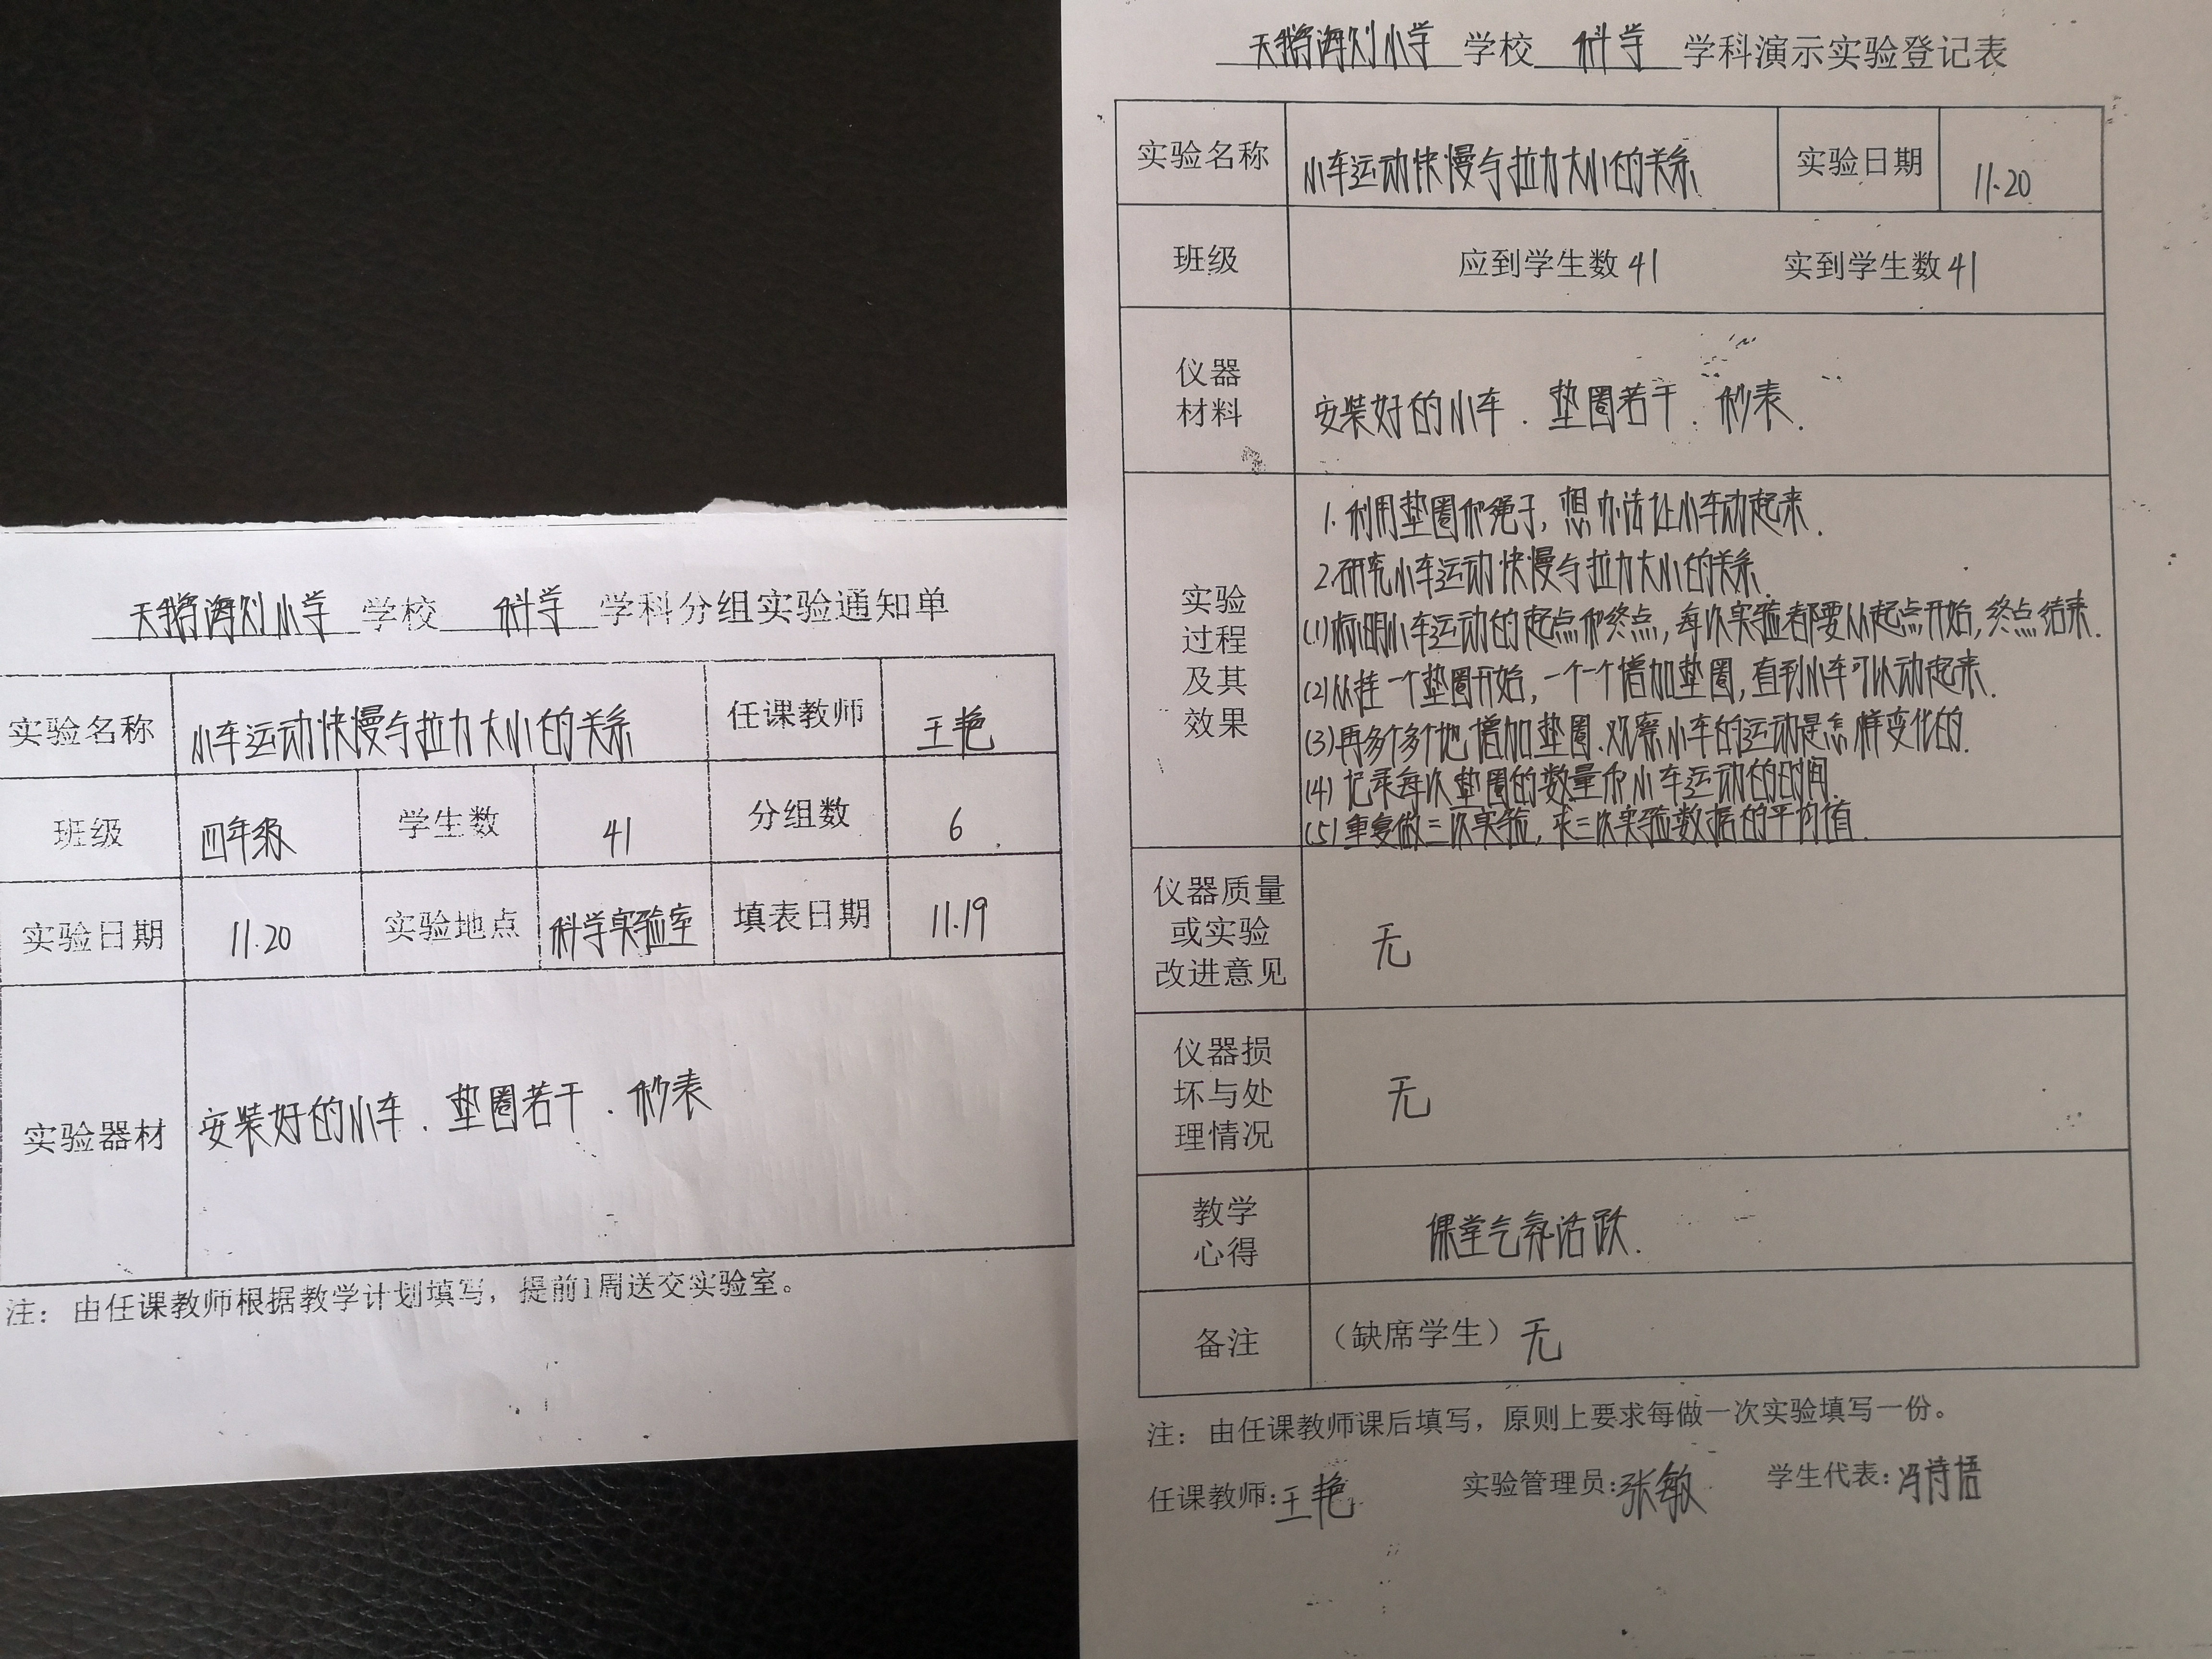 天鹅海列小学 学校 科学 学科分组实验通知单
实验名称 小车运动快慢与拉力大小的关系 任课教师 王艳
班级 四年级 学生数 41 分组数 6
实验日期 11.20 实验地点 科学实验室 填表日期 11.19
实验器材 安装好的小车. 垫圈若干. 秒表
注：由任课教师根据教学计划填写，提前1周送交实验室。
天鹅海列小学 学校 科学 学科演示实验登记表
实验名称 小车运动快慢与拉力大小的关系. 实验日期 11.20
班级 应到学生数 41 实到学生数 41
仪器
材料
安装好的小车. 垫圈若干. 秒表.
实验
过程
及其
效果
1.利用垫圈和绳子，想办法让小车动起来.
2.研究小车运动快慢与拉力大小的关系.
(1)标明小车运动的起点和终点，每次实验都要从起点开始，终点结束.
(2)从挂一个垫圈开始，一个一个增加垫圈，直到小车可以动起来.
(3)再多个多个地增加垫圈.观察小车的运动是怎样变化的.
(4)记录每次垫圈的数量和小车运动的时间.
(5)重复做三次实验，求三次实验数据的平均值.
仪器质量
或实验
改进意见
无
仪器损
坏与处
理情况
无
教学
心得
课堂气氛活跃.
备注 （缺席学生）无
注：由任课教师课后填写，原则上要求每做一次实验填写一份。
任课教师:王艳 实验管理员:张敏 学生代表:冯诗梧